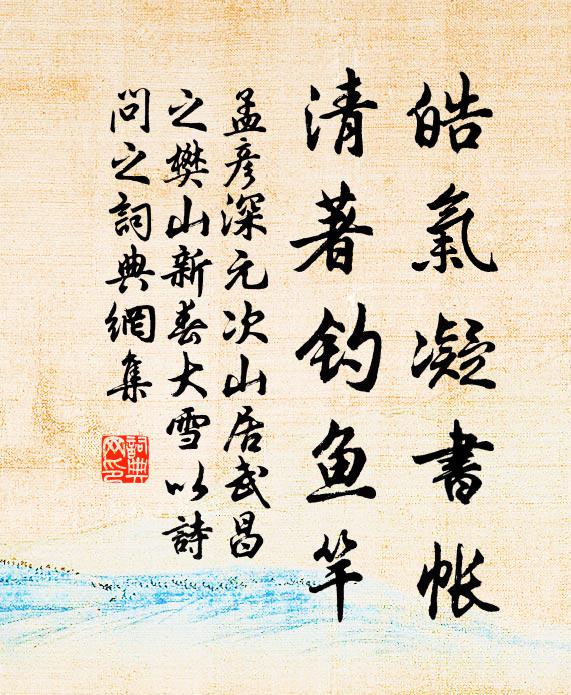 皓氣凝書帐
清著钓鱼竿
孟彦深元次山居武昌
之樊山新春大雪以詩
问之詞典網集
詞典网印